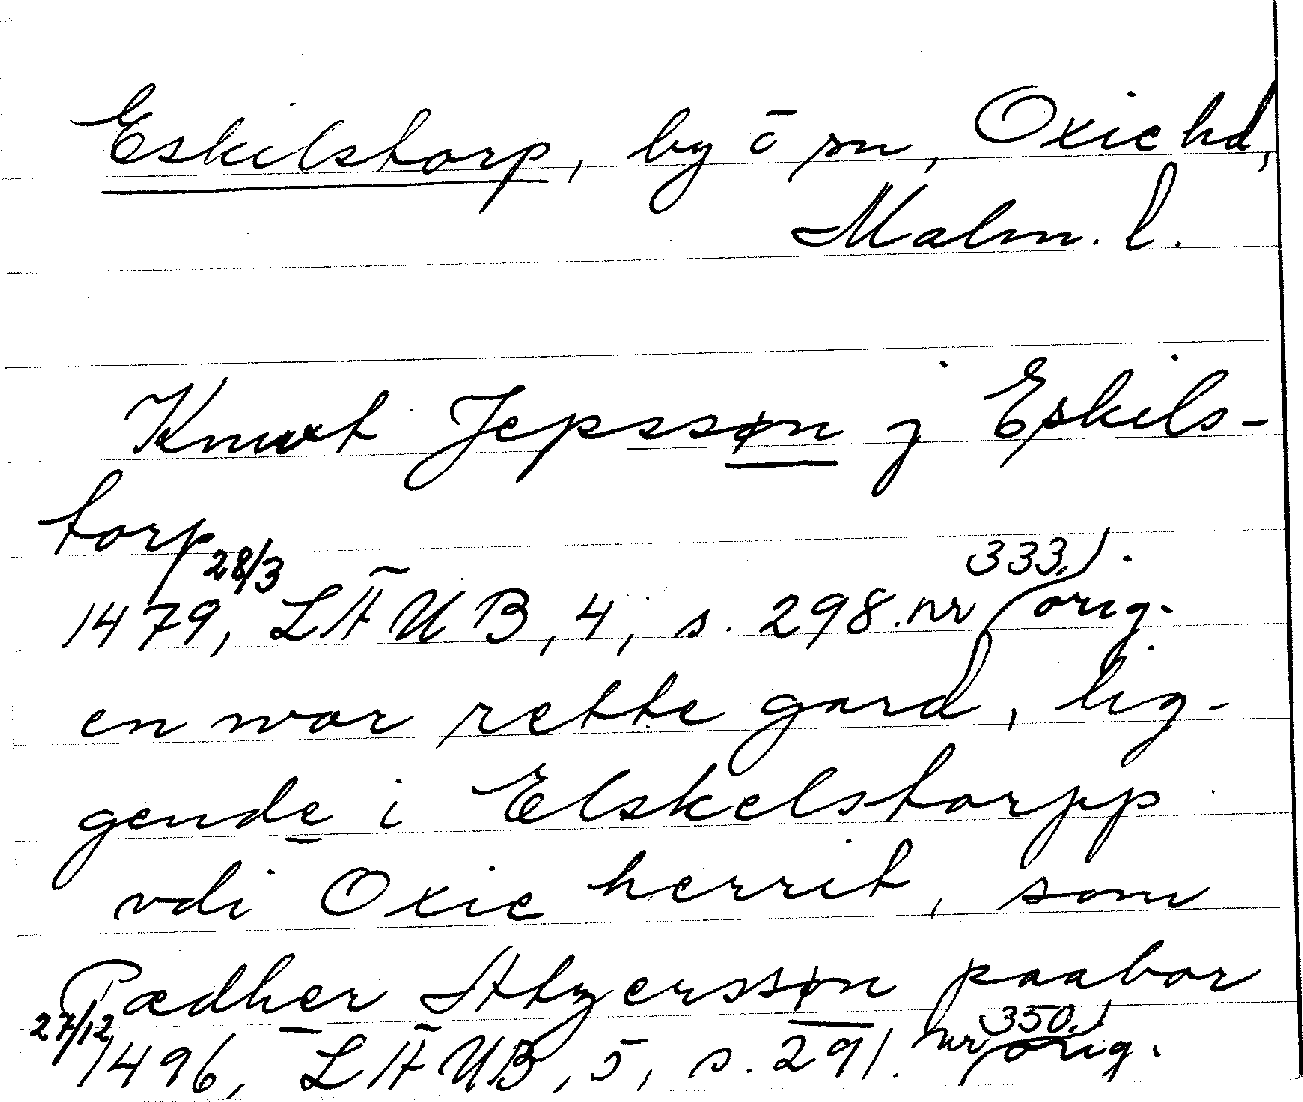 Eskilstorp, by o sn, Oxie hd,
Malm. l.
Knwt Jepssøn j Eskils-
torp
28/3 333.)
1479, LÄUB, 4, s. 298. nr (orig.
en wor rette gard, lig-
gende i Elskelstorpp
vdi Oxie herrit, som
Pædher Atzerssøn paabor
27/12 350.)
1496, LÄUB, 5, s. 291. nr (orig.